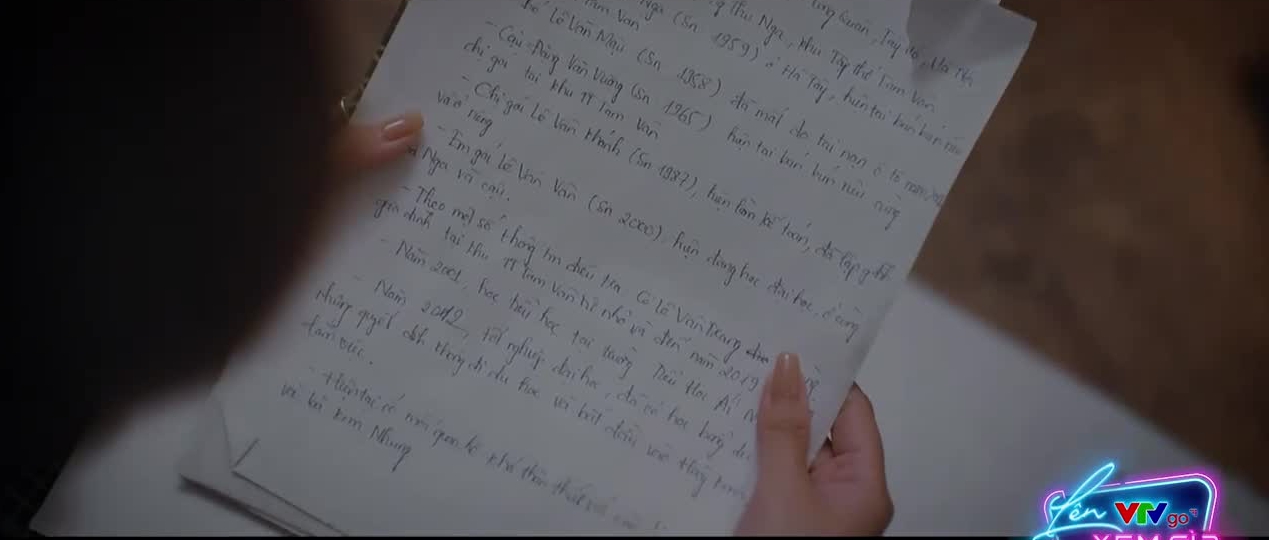 Tây Hồ, Hà Nội
Thu Nga, khu Tập thể Tam Vân
Nga (Sn 1959) ở Hà Tây, hiện tại bán bún
Tam Vân
Lê Văn Mậu (Sn 1958) đã mất do tai nạn ô tô năm
- Cậu Đặng Văn Vương (Sn 1965) hiện tại bán bún riêu cùng
chị gái tại khu TT Tam Vân
- Chị gái Lê Vân Khánh (Sn 1987), hiện làm kế toán, đã lập gđ
và ở riêng
- Em gái Lê Vân Vân (Sn 2000), hiện đang học đại học, ở cùng
Nga và cậu.
- Theo một số thông tin điều tra Cô Lê Vân Trang
gia đình tại khu TT Tam Vân từ nhỏ và đến năm 2019
- Năm 2001, học tiểu học tại trường Tiểu Học Ái
- Năm 2012, tốt nghiệp đại học, đã có học bổng du
nhưng quyết định không đi du học và bắt đầu vào
làm việc.
- Hiện tại có mối quan hệ khá thân thiết với
và bà Kim Nhung
Lên VTVgo
XEM GÌ?